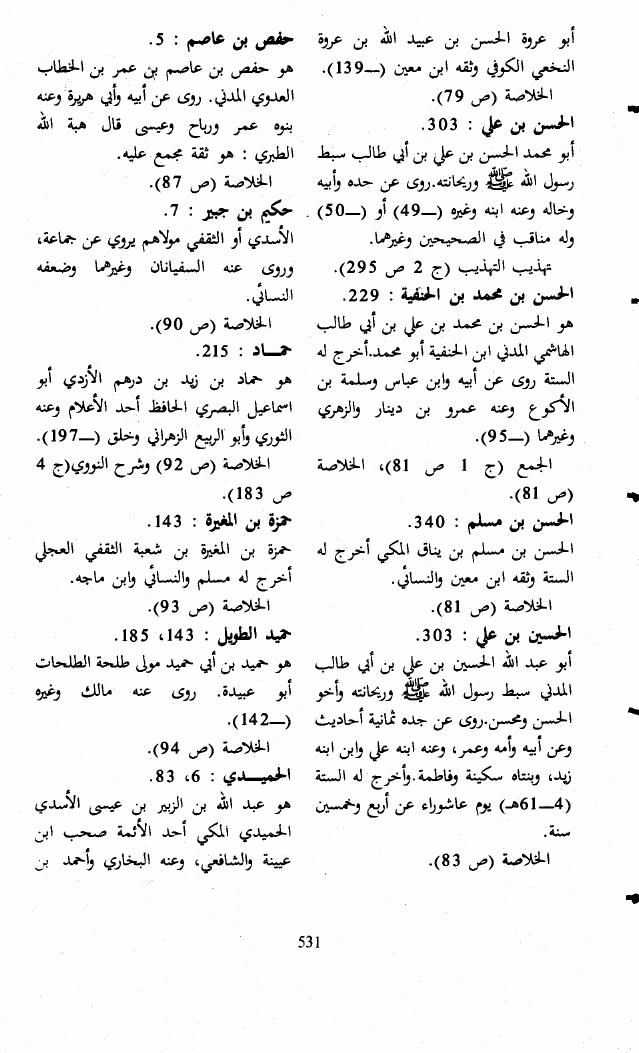 أبو عروة الحسن بن عبيد الله بن عروة
النخعي الكوفي وثقه ابن معين (—139).
الخلاصة (ص 79).
الحسن بن علي : 303.
أبو محمد الحسن بن علي بن أبي طالب سبط
رسول الله ﷺ وريحانته.روى عن جده وأبيه
وخاله وعنه ابنه وغيره (—49) أو (—50) .
وله مناقب في الصحيحين وغيرهما.
تهذيب التهذيب (ج 2 ص 295).
الحسن بن محمد بن الحنفية : 229.
هو الحسن بن محمد بن علي بن أبي طالب
الهاشمي المدني ابن الحنفية أبو محمد.أخرج له
الستة روى عن أبيه وابن عباس وسلمة بن
الأكوع وعنه عمرو بن دينار والزهري
وغيرهما (—95).
الجمع (ج 1 ص 81)، الخلاصة
(ص 81).
الحسن بن مسلم : 340.
الحسن بن مسلم بن يناق المكي أخرج له
الستة وثقه ابن معين والنسائي.
الخلاصة (ص 81).
الحسين بن علي : 303.
أبو عبد الله الحسين بن علي بن أبي طالب
المدني سبط رسول الله ﷺ وريحانته وأخو
الحسن ومحسن.روى عن جده ثمانية أحاديث
وعن أبيه وأمه وعمر، وعنه ابنه علي وابن ابنه
زيد، وبنتاه سكينة وفاطمة.وأخرج له الستة
(4—61هـ) يوم عاشوراء عن أربع وخمسين
سنة.
الخلاصة (ص 83).
حفص بن عاصم : 5.
هو حفص بن عاصم بن عمر بن الخطاب
العدوي المدني. روى عن أبيه وأبي هريرة وعنه
بنوه عمر ورباح وعيسى قال هبة الله
الطبري : هو ثقة مجمع عليه.
الخلاصة (ص 87).
حكيم بن جبير : 7.
الأسدي أو الثقفي مولاهم يروي عن جماعة،
وروى عنه السفيانان وغيرهما وضعفه
النسائي.
الخلاصة (ص 90).
حمـــاد : 215.
هو حماد بن زيد بن درهم الأزدي أبو
اسماعيل البصري الحافظ أحد الأعلام وعنه
الثوري وأبو الربيع الزهراني وخلق (—197).
الخلاصة (ص 92) وشرح النووي(ج 4
ص 183).
حمزة بن المغيرة : 143.
حمزة بن المغيرة بن شعبة الثقفي العجلي
أخرج له مسلم والنسائي وابن ماجه.
الخلاصة (ص 93).
حميد الطويل : 143، 185.
هو حميد بن أبي حميد مولى طلحة الطلحات
أبو عبيدة. روى عنه مالك وغيره
(—142).
الخلاصة (ص 94).
الحميـــدي : 6، 83.
هو عبد الله بن الزبير بن عيسى الأسدي
الحميدي المكي أحد الأئمة صحب ابن
عيينة والشافعي، وعنه البخاري وأحمد بن
531